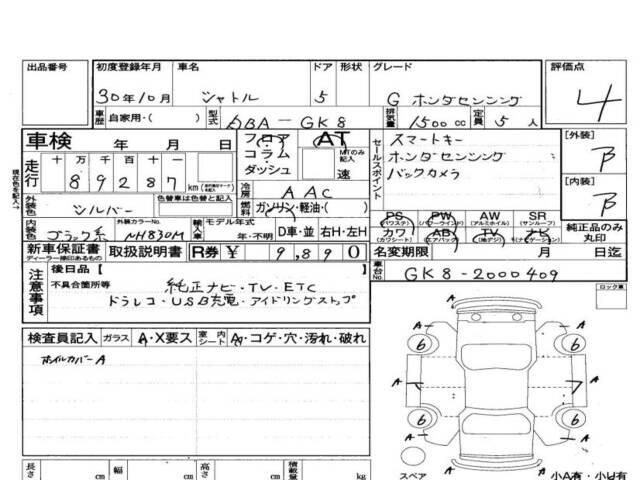 出品番号 初度登録年月 車名 ドア 形状 グレード 評価点
30年10月 シャトル 5 G ホンダセンシング 4
車歴 自家用・( ) 型式 DBA-GK8 排気量 1500 cc 定員 5人
車検 年 月 日 フロア AT セールスポイント スマートキー [外装] B
走行 十万 万 千 百 十 一 コラム MTのみ記入 ホンダセンシング
89287 km ダッシュ 速 バックカメラ [内装] B
現在色を記入→
外装色 シルバー 色替車は色替と記入 冷房 AAC
燃料 ガソリン・軽油・( )
PS (パワステ) PW (パワーウインド) AW (アルミホイル) SR (サンルーフ) 純正品のみ丸印
内装色 ブラック系 外装カラーNo. NH830M 輸入車 モデル年式 年・不明 D車・並 右H・左H カワ (カワシート) AB (エアバック) TV (地デジ) ナビ (ナビゲーション)
新車保証書 ディーラー捺印あるもの 取扱説明書 R券 ¥ 9,890 名変期限 月 日迄
注意事項 後日品[ ] 車台No. GK8-2000409
不具合箇所等 純正ナビ・TV・ETC ロック車
ドラレコ・USB充電・アイドリングストップ
検査員記入 ガラス A・X要ス 室内シート A・コゲ・穴・汚れ・破れ
ホイルカバーA
A A
6 6
A A
6 6
A A
長さ cm 幅 cm 高さ cm 積載量 kg スペア 小A有・小U有